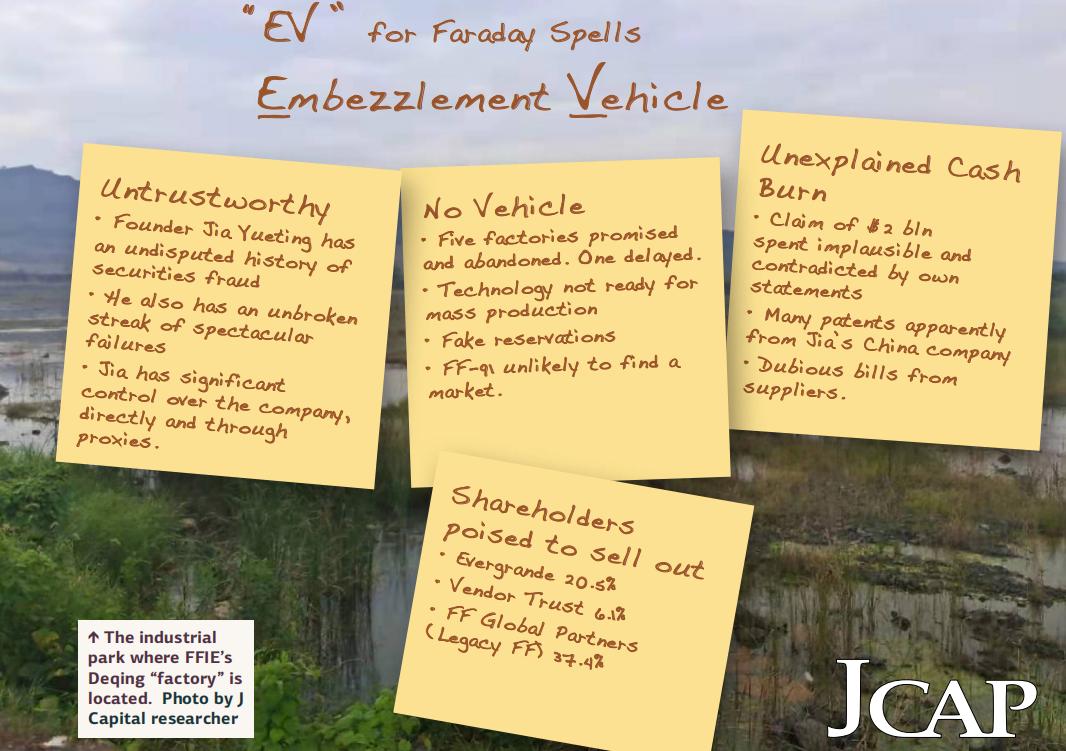 "EV" for Faraday Spells
Embezzlement Vehicle
Untrustworthy
• Founder Jia Yueting has
an undisputed history of
securities fraud
• He also has an unbroken
streak of spectacular
failures
• Jia has significant
control over the company,
directly and through
proxies.
No Vehicle
• Five factories promised
and abandoned. One delayed.
• Technology not ready for
mass production
• Fake reservations
• FF-91 unlikely to find a
market.
Unexplained Cash
Burn
• Claim of $2 bln
spent implausible and
contradicted by own
statements
• Many patents apparently
from Jia's China company
• Dubious bills from
suppliers.
Shareholders
poised to sell out
• Evergrande 20.5%
• Vendor Trust 6.1%
• FF Global Partners
(Legacy FF) 37.4%
↑ The industrial
park where FFIE's
Deqing "factory" is
located. Photo by J
Capital researcher
JCAP